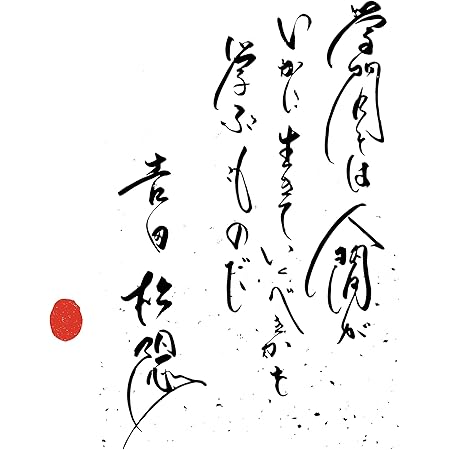 学問とは人間が
いかに生きていくべきかを
学ぶものだ
吉田松陰